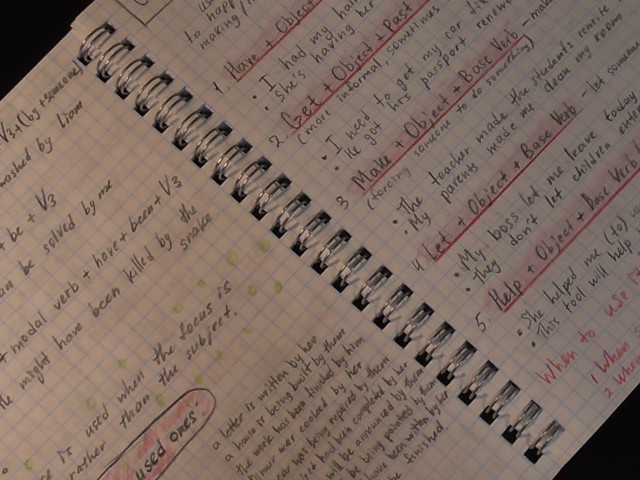 V3 + (by + someone)
washed by Liam
be + V3
can be solved by me
modal verb + have + been + V3
He might have been killed by the
snake
is used when the focus is
rather than the subject.
used ones:
a letter is written by her
a house is being built by them
the work has been finished by him
dinner was cooked by her
car was being repaired by them
had been completed by her
will be announced by them
be being painted by
have been written by her
be finished
In happ
making/
1. Have + Object
• I had my hair
• She's having her
2. Get + Object + Past
(more informal, sometimes
• I need to get my car
• He got his passport renewe
3 Make + Object + Base Verb
(forcing someone to do something)
• The teacher made the students rewrite
• My parents made me clean my room
4. Let + Object + Base Verb - let someone
• My boss let me leave today
• They don't let children
5. Help + Object + Base Verb
• She helped me (to)
• This tool will help
When to use
1 When
2 When